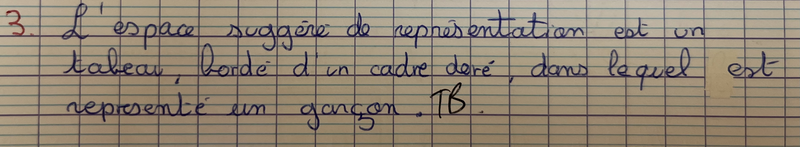 3. L'espace suggéré de représentation est un
tableau, bordé d'un cadre doré, dans lequel est
representé un garçon. TB.